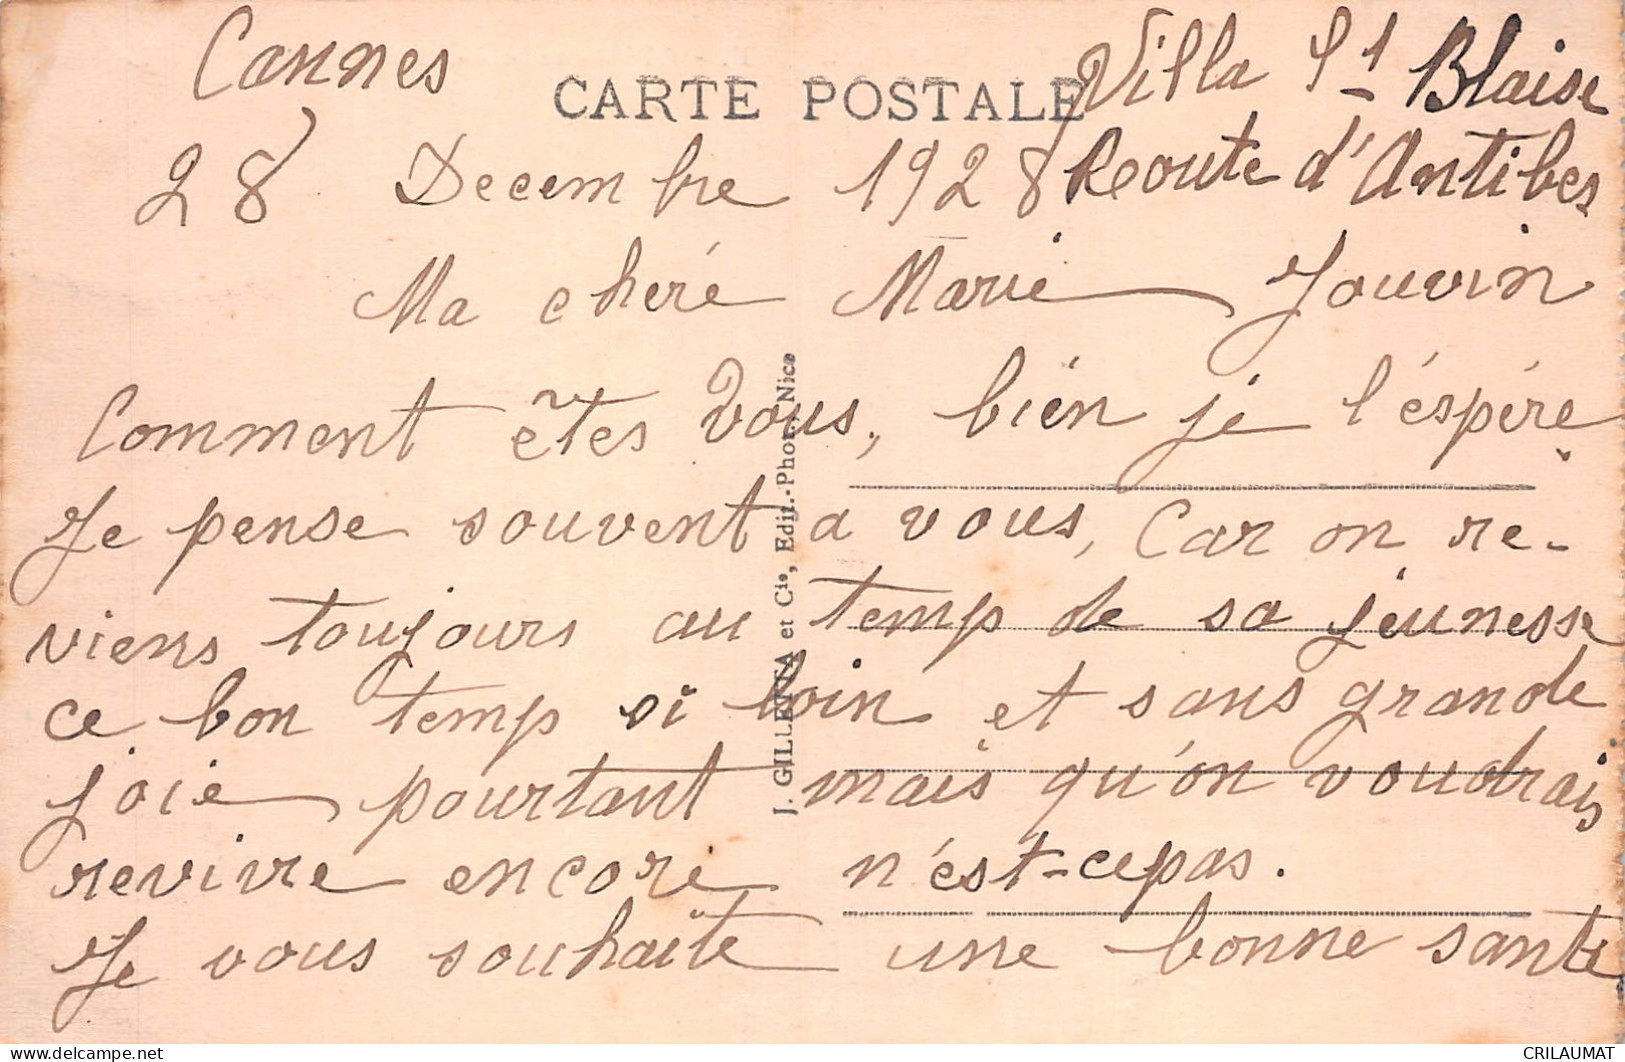 Cannes
CARTE POSTALE
Villa St Blaise
28 Decembre 1928
Reoute d'Antibes
Ma cheré Marie Jouvin
Comment êtes Vous, bién je l'éspére
Je pense souvent a vous, Car on re-
viens toujours au temp de sa jeunesse
ce bon temp si loin et sans grande
joie pourtant mais qu'on voudrais
revivre encore n'est-cepas.
Je vous souhaite une bonne santé
J. GILLETTA et Cie, Edit.-Phot., Nice
delcampe.net
CRILAUMAT